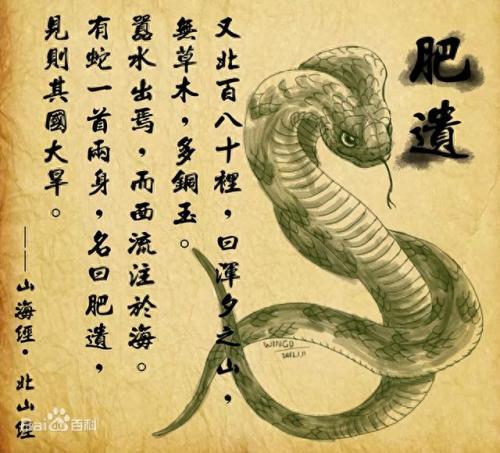 肥遺
又北百八十裡，曰渾夕之山，
無草木，多銅玉。
囂水出焉，而西流注於海。
有蛇一首兩身，名曰肥遺，
見則其國大旱。
——山海經·北山經
WINGO
Bai百科